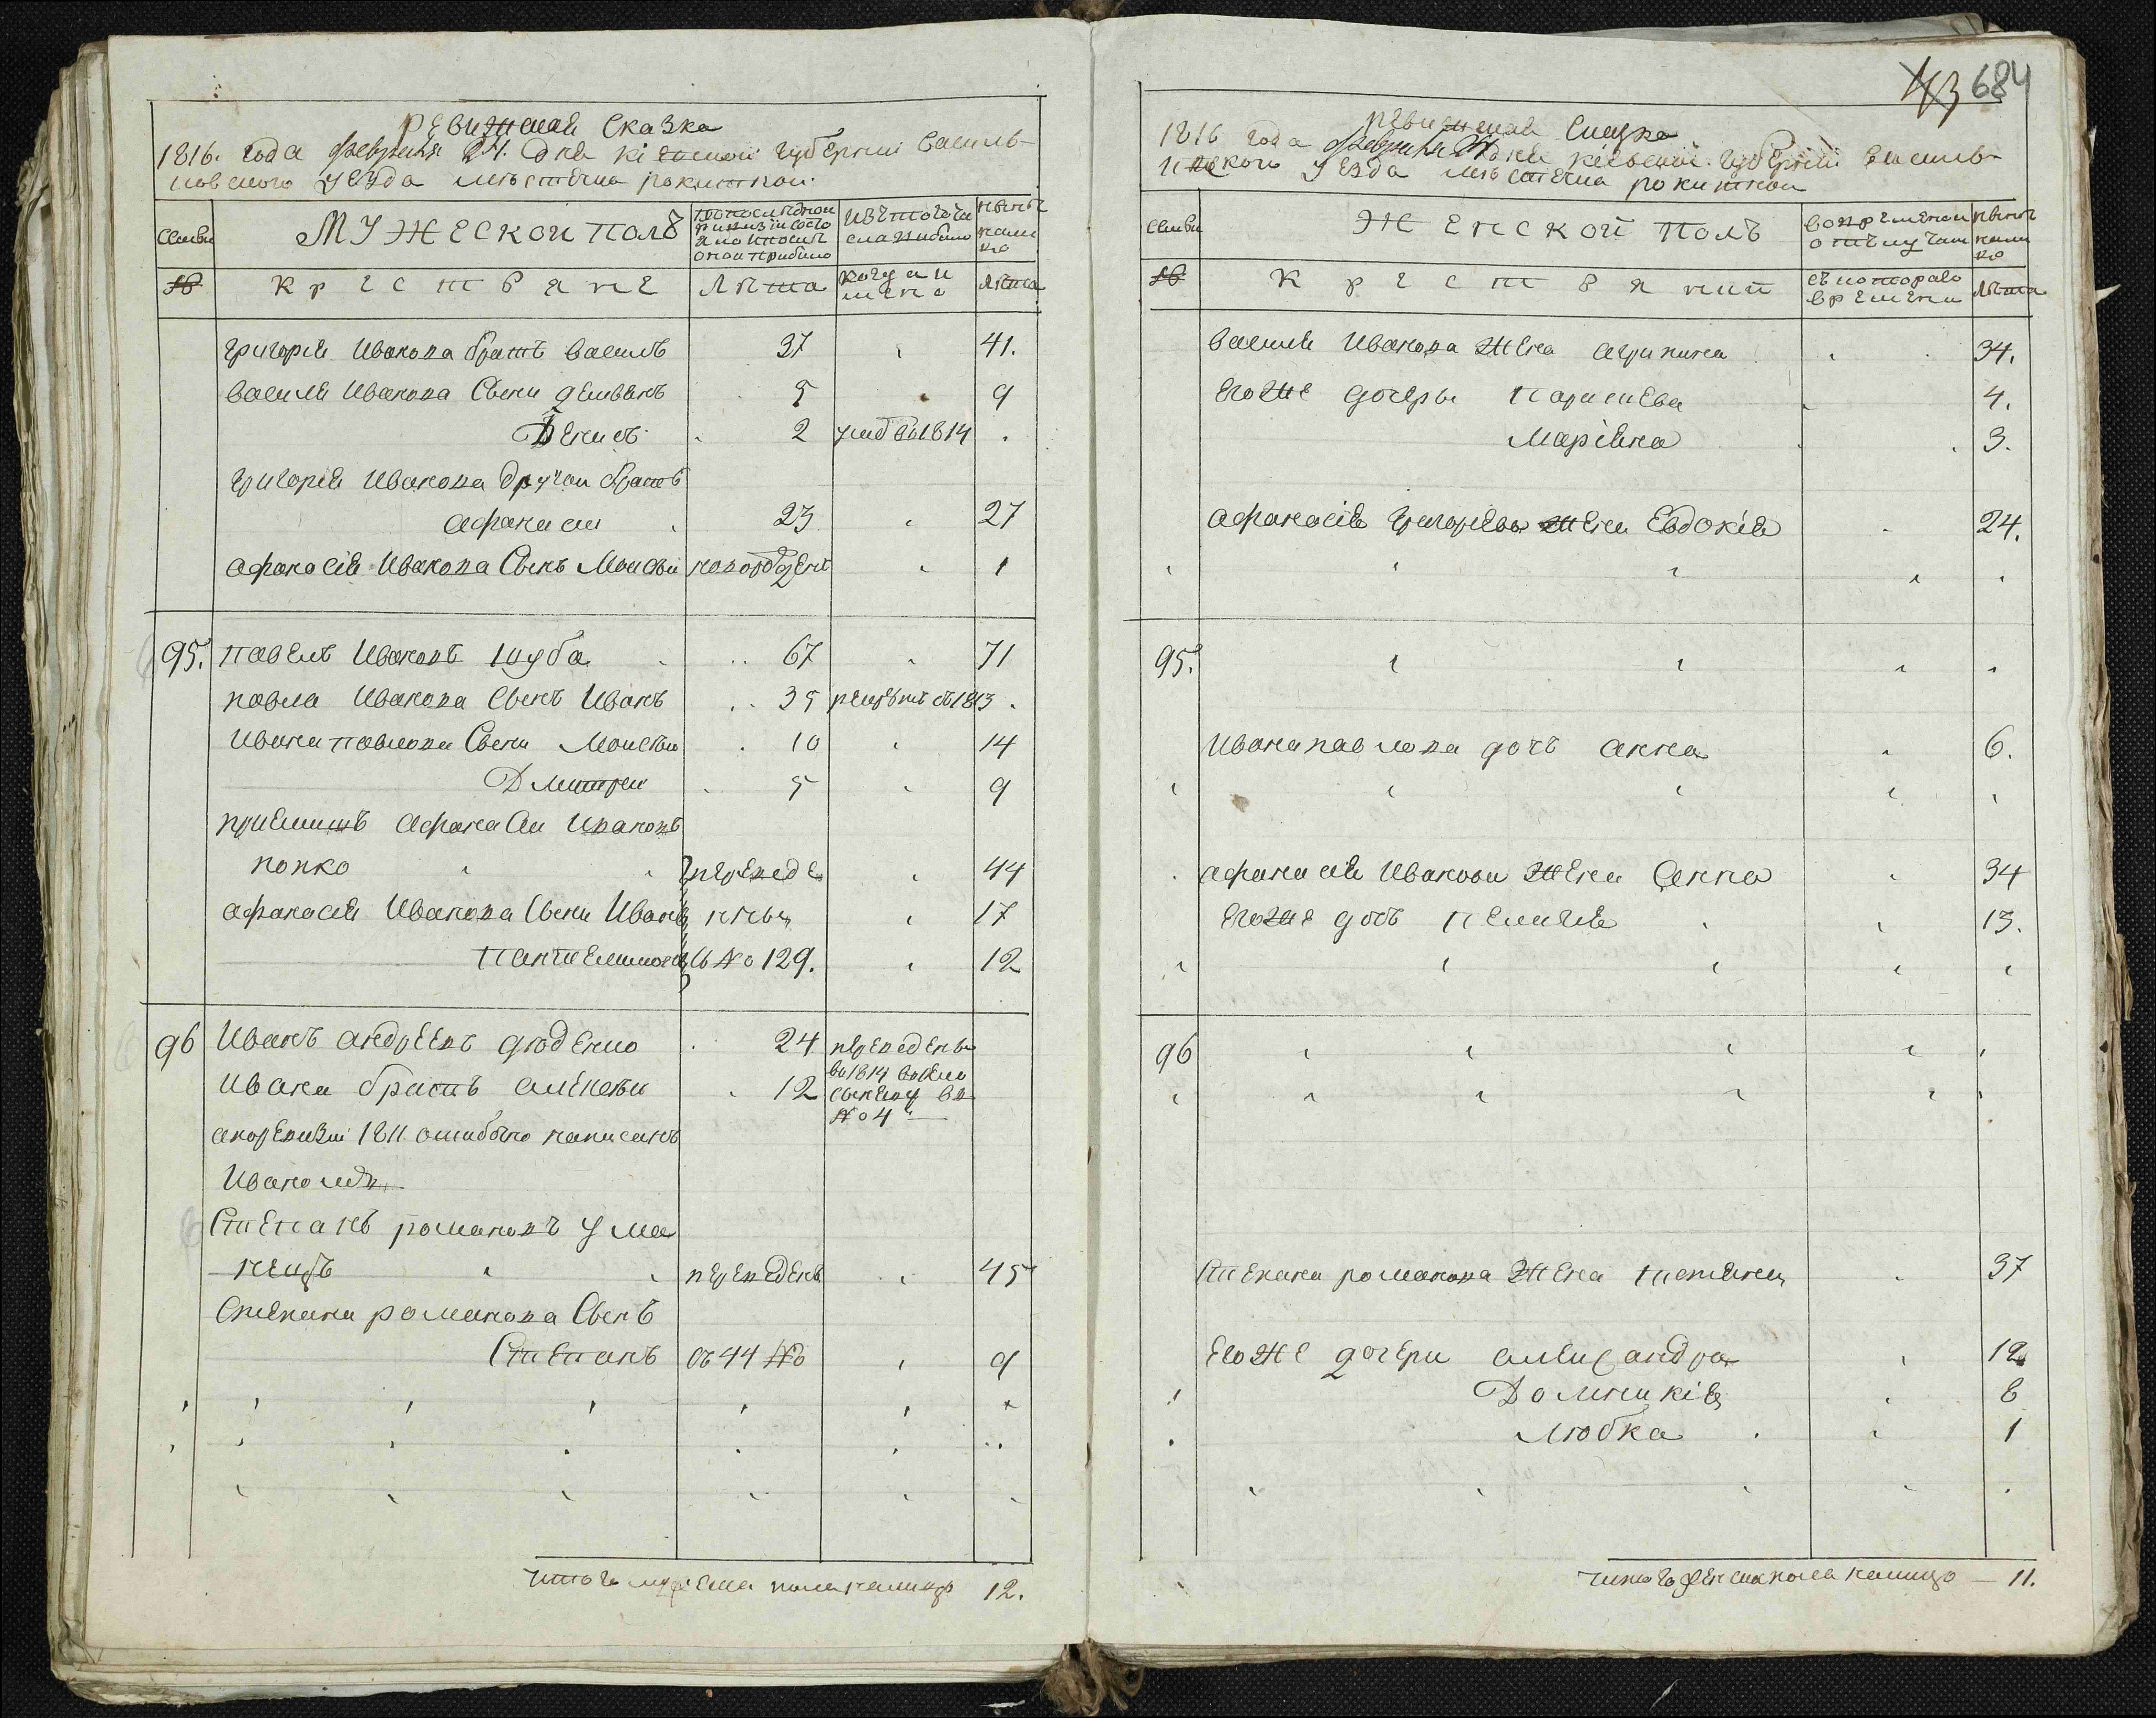 Ревижская Сказка
1816. года февраля 24. дня кіевской губерніи василь-
ковского уезда местечка рокитной
Семьи
МУЖЕСКОЙ ПОЛЪ
По последней ревизіи состояло и после оной прибыло
Изъ того числа выбыло
Ныне на лицо
18
Крестьяне
Лета
когда и имено
Лета
Григорія Иванова братъ василь 37 41.
василя Иванова Сыны демянъ 5 9
Денисъ 2 умер въ 1814
Григорія Иванова другои братъ
афанасіи 23 27
афанасія Иванова Сынъ Моисей новорожденъ 1
95. павелъ Ивановъ шуба 67 71
павла Иванова Сынъ Иванъ 35 рекрутъ съ 1813
Ивана павлова Сыны Моисей 10 14
Дмитрей 5 9
приемишъ афанасіи Ивановъ
попко переведе 44
афанасія Иванова Сыны Иванъ нны 17
Пантелимонъ съ № 129. 12
96 Иванъ андреевъ дюденко 24 переведены
въ 1814
Ивана братъ алексеи 12
№ 4
а по ревизіи 1811 ошибочно написанъ
Ивановъ
Степанъ романовъ ума
нецъ переведенъ 45
Степана романова Сынъ
Степанъ съ 44 № 9
итого мужеска пола налицо 12.
43 684
ревижская Сказка
1816 года февраля 24 дня кіевской губерніи василь-
ковского уезда местечка рокитной
Семьи
ЖЕНСКОЙ ПОЛЪ
во временной отлучке
ныне налицо
18
Крестьянки
съ которого времени
Лета
василя Иванова жена агрипина 34.
егоже дочеры Парасцева 4.
Маріяна 3.
афанасія Григорьева жена Евдокія 24.
95.
Ивана павлова дочъ анна 6.
афанасія Иванова жена Анна 34
егоже дочъ пелагія 13.
96
Степана романова жена татяна 37
егоже дочери александра 12
Домникія 6
Любка 1
итого женска пола налицо — 11.